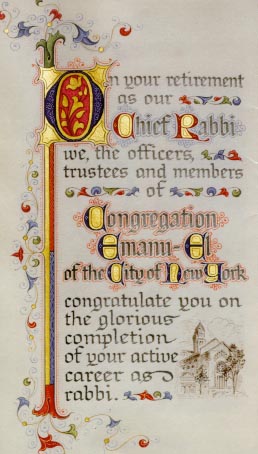 On your retirement
as our
Chief Rabbi
we, the officers,
trustees and members
of
Congregation
Emanu-El
of the City of New York
congratulate you on
the glorious
completion
of your active
career as
rabbi.